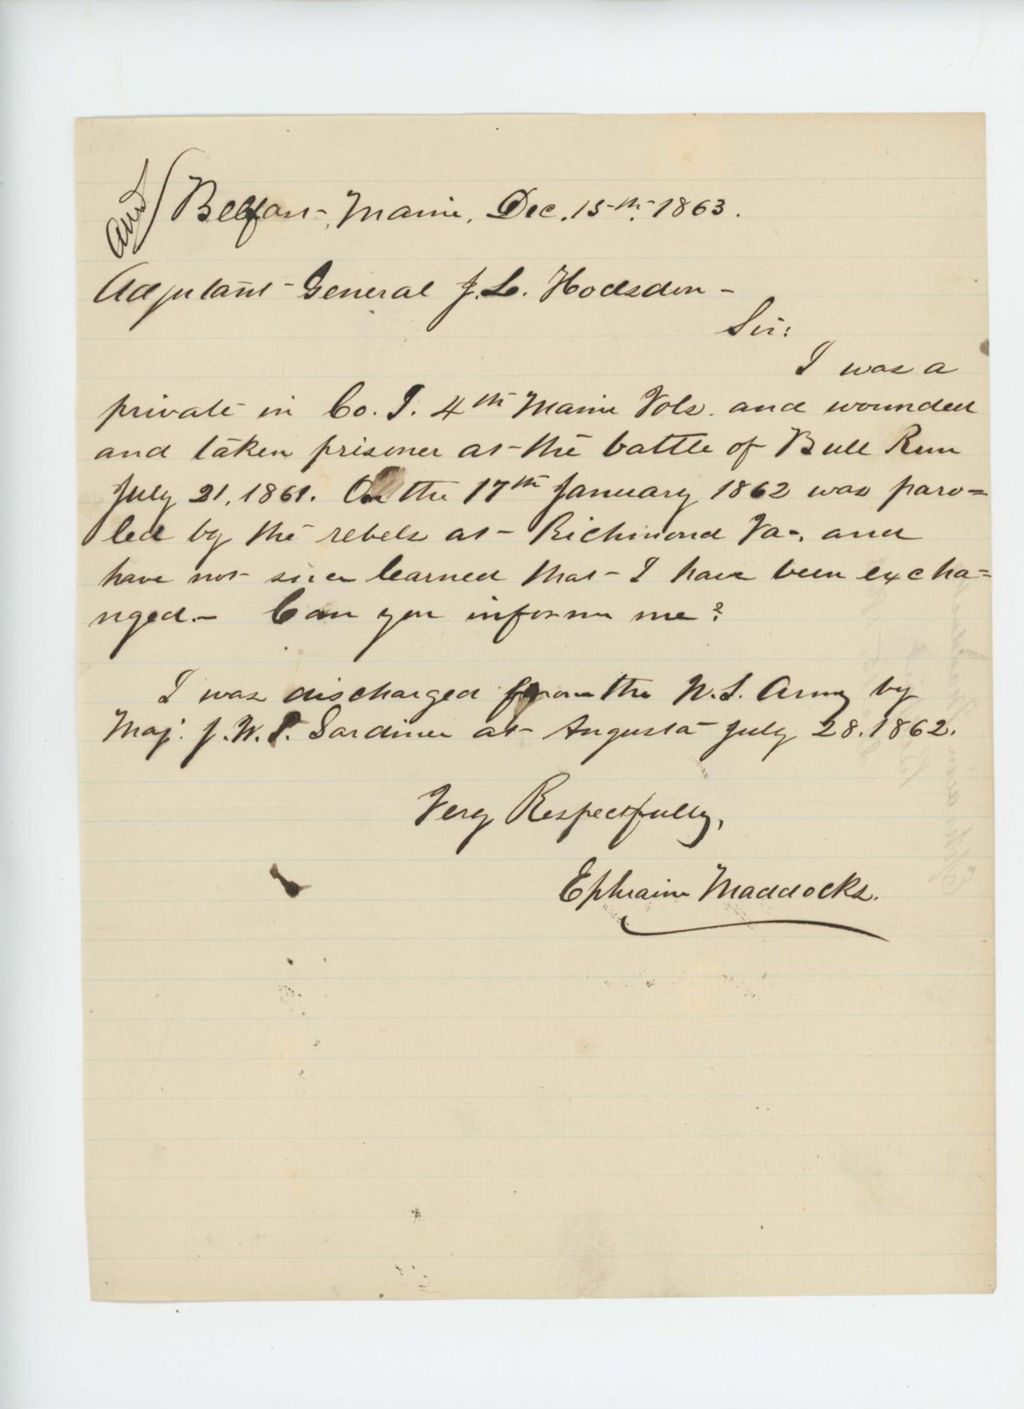 Ansd
Belfast, Maine, Dec. 15th 1863.
Adjutant General J. L. Hodsdon -
Sir:
I was a
private in Co. I. 4th Maine Vols. and wounded
and taken prisoner at the battle of Bull Run
July 21, 1861. On the 17th January 1862 was paro=
led by the rebels at Richmond Va, and
have not since learned that I have been excha=
nged. - Can you inform me?
I was discharged from the U.S. Army by
Maj. J. W. T. Gardiner at Augusta July 28. 1862.
Very Respectfully,
Ephraim Maddocks.